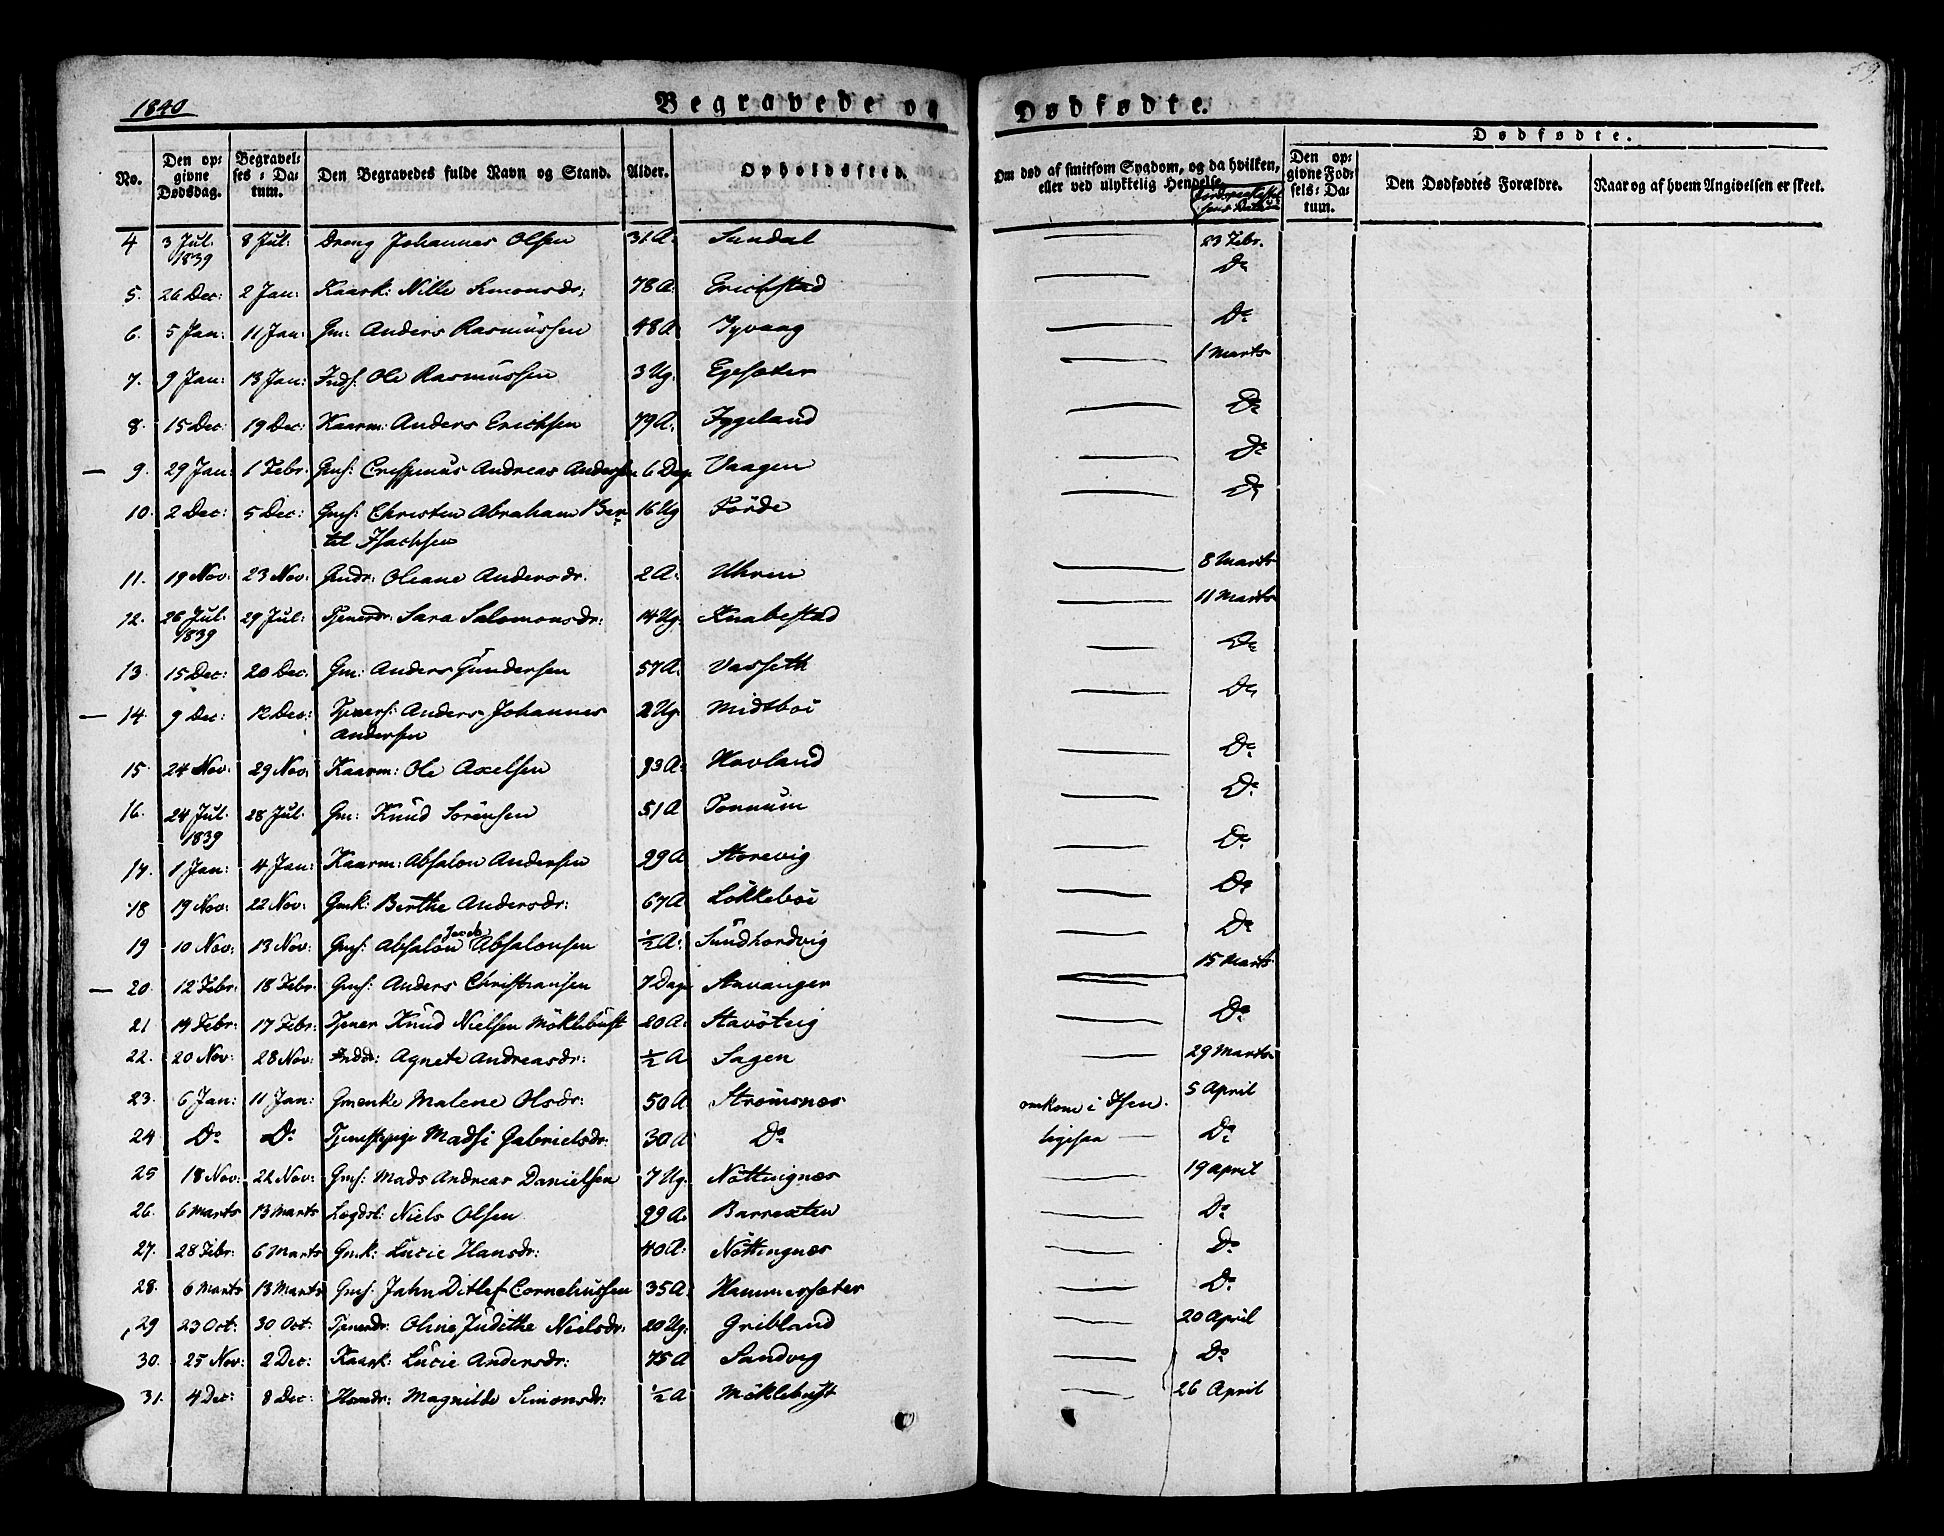 1840 Begravede og Dødfødte. 59.
Dødfødte.
No. Den opgivne Dødsdag. Begravelses-Datum. Den Begravedes fulde Navn og Stand. Alder. Opholdssted. Om død af smitsom Sygdom, og da hvilken, eller ved ulykkelig Hendelse. Den opgivne Fødsels-Datum. Den Dødfødtes Forældre. Naar og af hvem Angivelsen er skeet.
4 3 Jul. 1839 8 Jul: Dreng Johannes Olsen 31 A: Sundal 23 Febr.
5. 26 Dec: 2 Jan: Kaark: Nille Simonsdr: 78 A: Erichstad Do
6. 5 Jan: 11 Jan: Gm: Anders Rasmussen 48 A: Do
7. 9 Jan: 13 Jan: Inds: Ole Rasmussen 3 Ug. Egesæter 1 Marts
8. 15 Dec 19 Dec: Kaarm: Anders Erichsen 79 A: Fygeland Do
9. 29 Jan: 1 Febr. Gms: Andreas Andersen 6 Dag Vaagen Do
10. 2 Dec: 5 Dec: Gms: Christen Abraham Ber-
til Isachsen 16 Ug Förde Do
11. 19 Nov: 23 Nov: Gmdr: Oleane Andersdr: 2 A: Uhren 8 Marts
12. 26 Jul. 1839 29 Jul: Tjenerdr: Sara Salomonsdr: 14 Ug. Knabestad 11 Marts
13. 15 Dec: 20 Dec: Gm: Anders Gundersen 57 A: Vasseth Do
14. 9 Dec: 12 Dec: Tjeners: Anders Johannes
Andersen 2 Ug. Midtböe Do
15. 24 Nov: 29 Nov. Kaarm: Ole Axelsen 93 A: Hovland Do
16. 24 Jul. 1839 28 Jul. Gm: Knud Sörensen 51 A Tonnum Do
17. 1 Jan: 4 Jan: Kaarm: Absalon Andersen 99 A Storevig Do
18 19 Nov: 22 Nov: Gmk: Berthe Andersdr: 67 A Lökkeböe Do
19 10 Nov: 13 Nov: Gms: Absalon Jacob Absalonsen ½ A: Sundhordvig Do
20. 12 Febr: 18 Febr: Gms: Anders Christiansen 7 Dage Stavanger 15 Marts
21 14 Febr: 17 Febr: Tjener Knud Nielsen Möklebust 20 A: Do
22. 20 Nov: 28 Nov: Indd: Agnete Andreasdr: ½ A Sagen 29 Marts
23. 6 Jan: 11 Jan: Gmenke Malene Olsdr: 50 A. Strömsnæs omkom i Isen. 5 April
24 Do Do Tjenestepige Madsi Gabrielsdr. 30 A Do ligesaa Do
25 18 Nov: 22 Nov: Gms: Mads Andreas Danielsen 7 Ug. Nöttingnæs 19 April
26. 6 Marts 13 Marts Lægdsl: Niels Olsen 99 A. Barrexten Do
27. 28 Febr: 6 Marts Gmk: Lucie Hansdr: 40 A: Nöttingnæs Do
28. 6 Marts 13 Marts Gms: Jahn Ditlef Corneliussen 35 A: Hammersæter Do
29 23 Oct: 30 Oct: Tjenerdr: Oline Judithe Nielsdr: 20 Ug. Gribland 20 April
30. 25 Nov: 2 Dec: Kaark: Lucie Andersdr: 75 A Sandvig Do
31. 4 Dec: 8 Dec: Magnilde Simonsdr: ½ A Möklebust 26 April